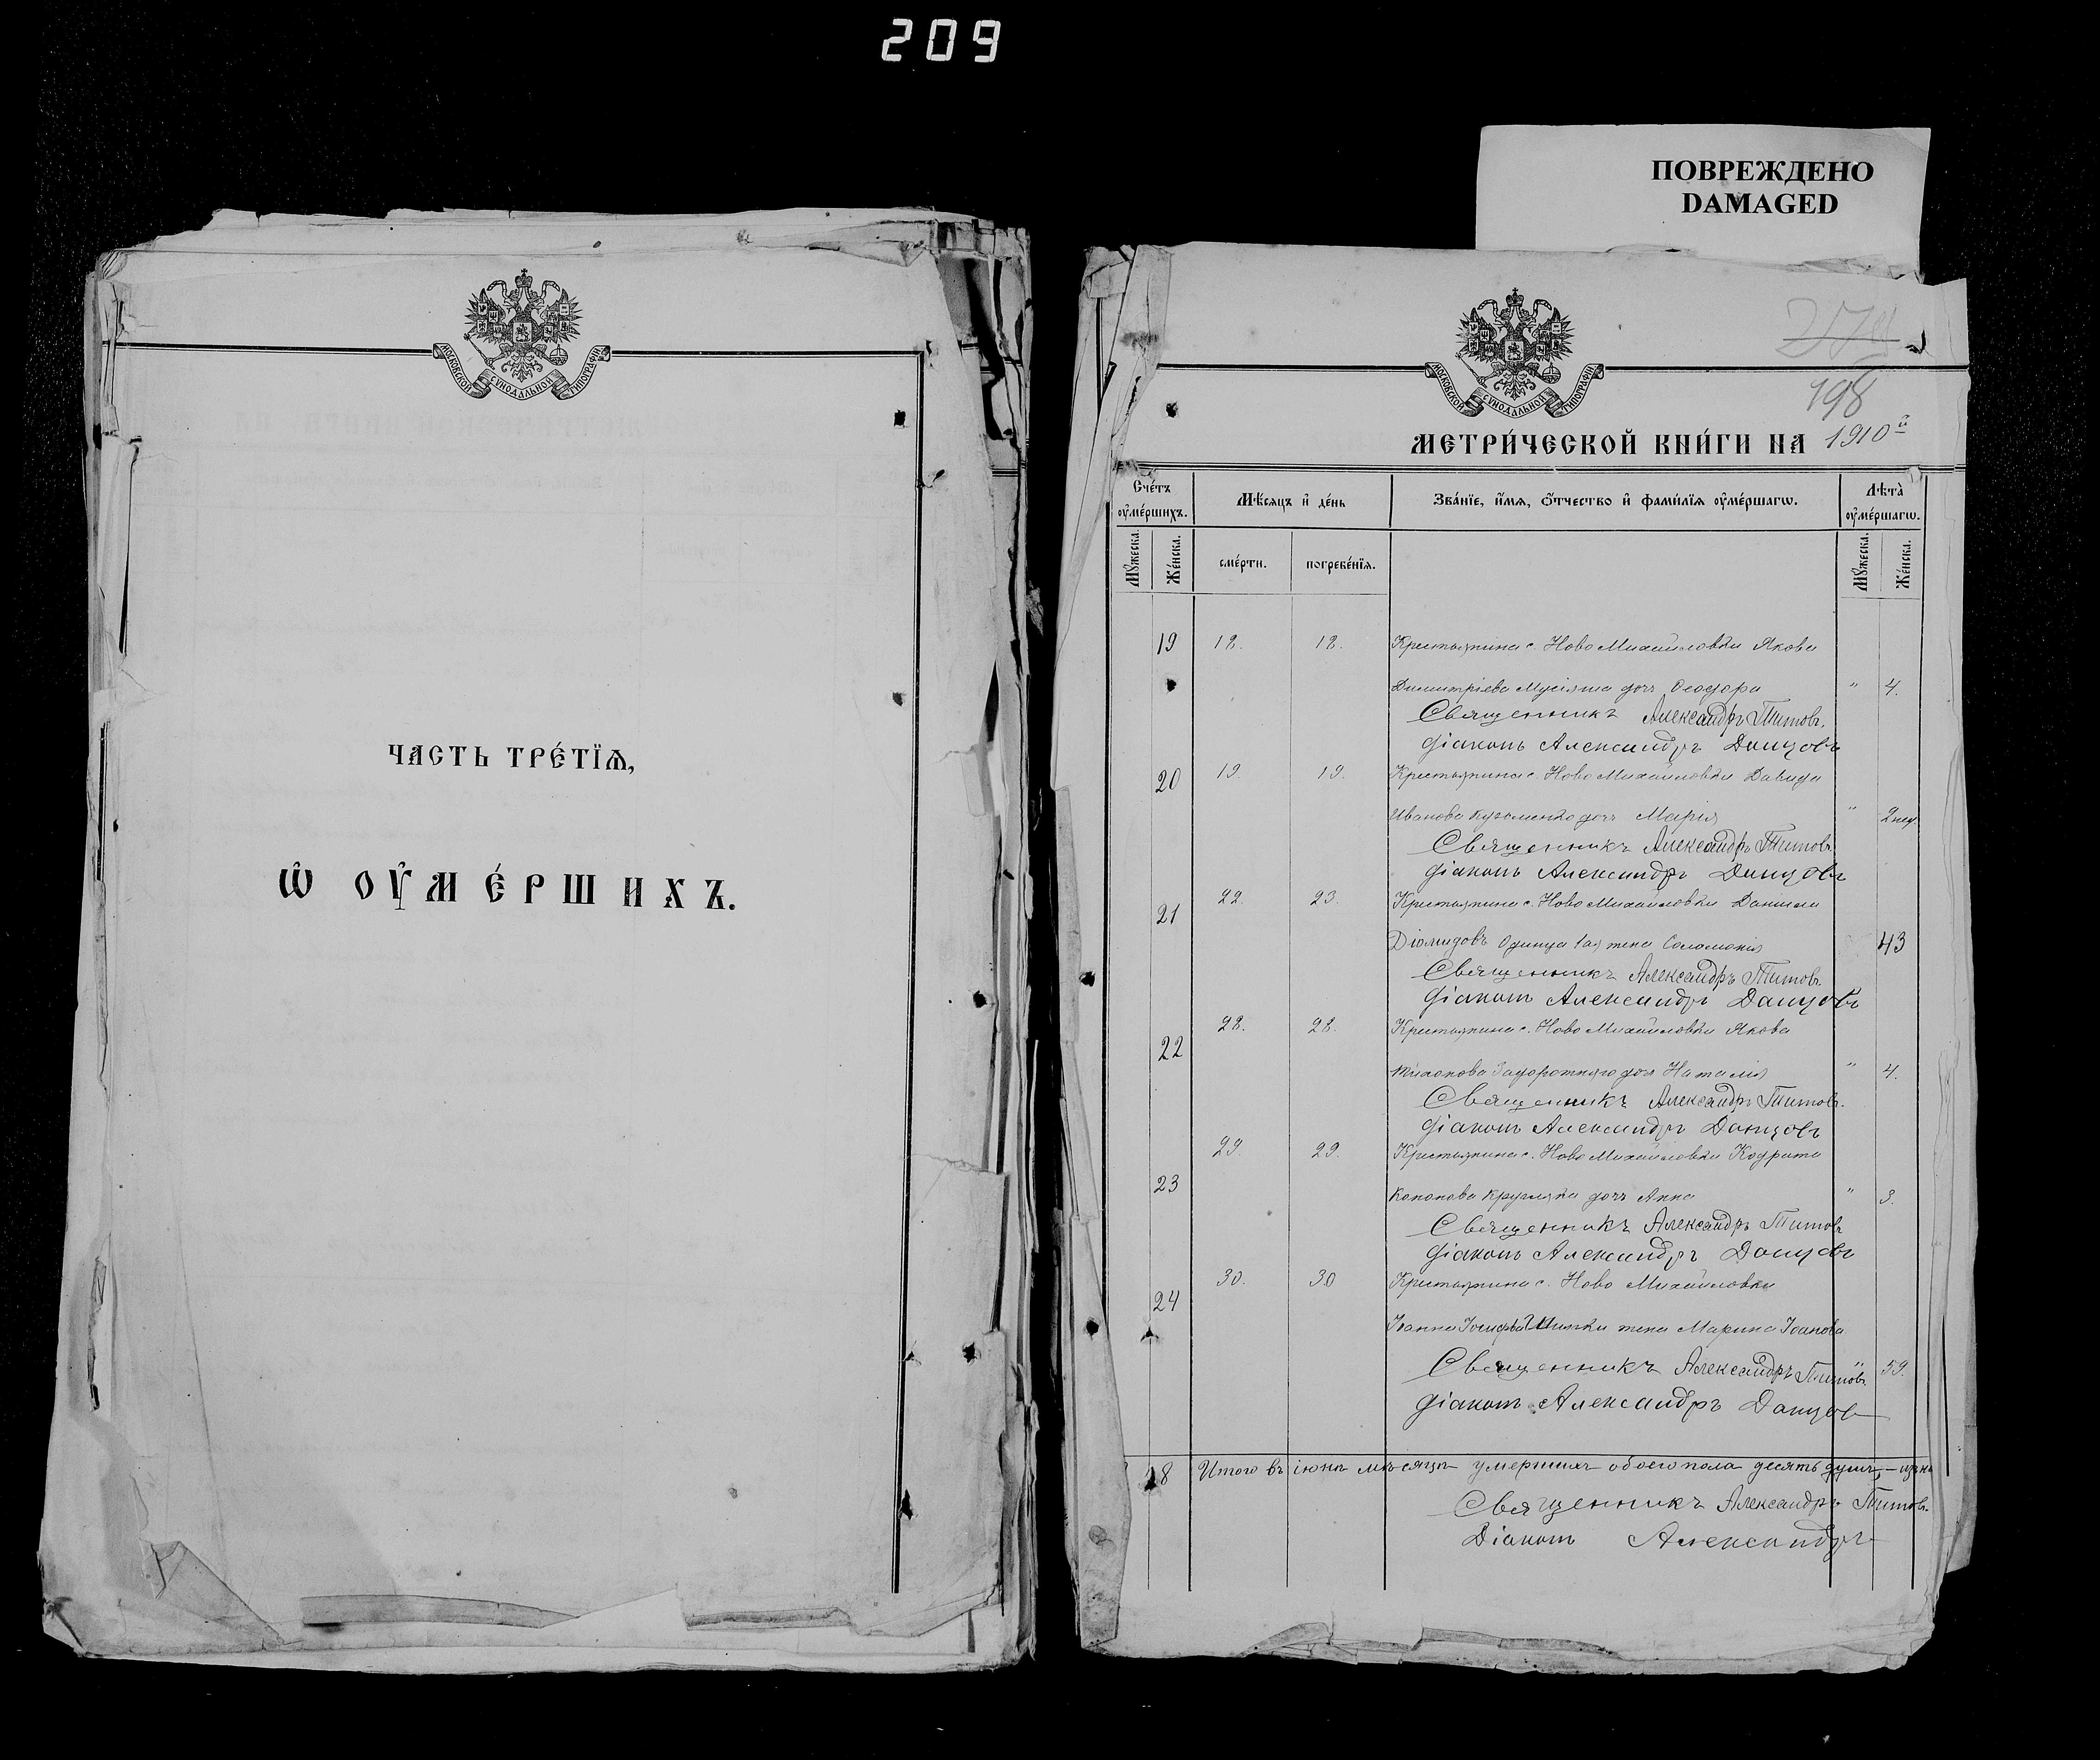 209
ПОВРЕЖДЕНО
DAMAGED
МОСКОВСКОЙ СѴНОДАЛЬНОЙ ТИПОГРАФІИ
ЧАСТЬ ТРЕ́ТІѦ,
Ѡ ОУ҆МЕ́РШИХЪ.
МОСКОВСКОЙ СѴНОДАЛЬНОЙ ТИПОГРАФІИ
198
МЕТРИ́ЧЕСКОЙ КНИ́ГИ НА 1910й
Сче́тъ оу҆ме́ршихъ.
Мѣ́сяцъ и҆ де́нь
Зва́нїе, и҆́мѧ, ѻ҆́тчество и҆ фами́лїѧ оу҆ме́ршагѡ.
Лѣта̀ оу҆ме́ршагѡ.
Мꙋ́жеска.
Же́нска.
сме́рти.
погребе́нїѧ.
Мꙋ́жеска.
Же́нска.
19 18. 18. Крестьянина с. Ново Михайловки Якова
Димитріева дочь Ѳеодора " 4.
Священникъ Александръ Титовъ.
Діаконъ Александръ Донцовъ
20 19. 19. Крестьянина с. Ново Михайловки Давида
Иванова Кузьменко дочь Марія " 2 нед.
Священникъ Александръ Титовъ
Діаконъ Александръ Донцовъ
21 22. 23. Крестьянина с. Ново Михайловки Даніила
Діомидовъ Одинца 1ая жена Соломонія 43
Священникъ Александръ Титовъ
Діаконъ Александръ Донцовъ
22 28. 28. Крестьянина с. Ново Михайловки Якова
Тихонова Задорожняго дочь Наталія " 4.
Священникъ Александръ Титовъ.
Діаконъ Александръ Донцовъ
23 29. 29. Крестьянина с. Ново Михайловки Кодрата
Кононова Кругляка дочь Анна " 3.
Священникъ Александръ Титовъ
Діаконъ Александръ Донцовъ
24 30. 30 Крестьянина с. Ново Михайловки
Іоанна Іосифова жена Марина Іоанова
Священникъ Александръ Титовъ " 59.
Діаконъ Александръ Донцовъ
8 Итого въ іюнѣ мѣсяцѣ умершихъ обоего пола десять душъ,
Священникъ Александръ Титовъ.
Діаконъ Александръ